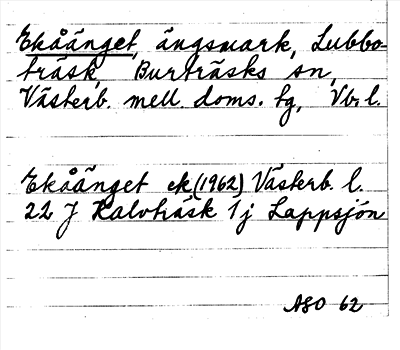 Ekåänget, ängsmark, Lubbo-
träsk, Burträsks sn,
Västerb. mell. doms. tg, Vb. l.
Ekåänget ek (1962) Västerb. l.
22 J Kalvträsk 1 j Lappsjön
ASO 62